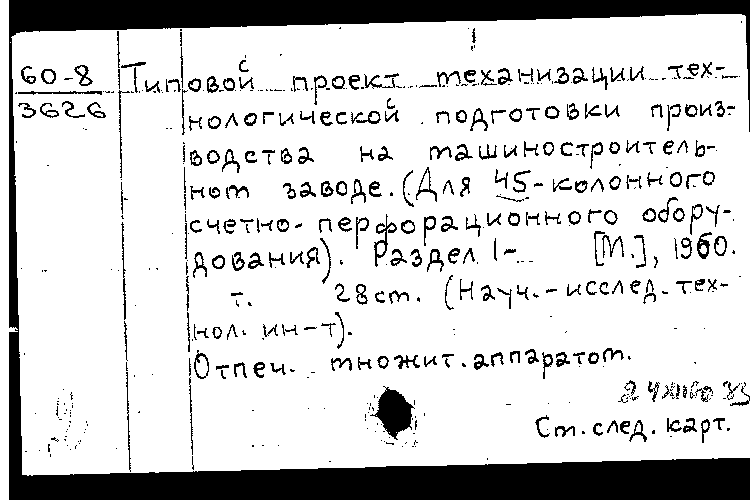 60-8 Типовой проект механизации тех-
3626 нологической подготовки произ-
водства на машиностроитель-
ном заводе. (Для 45-колонного
счетно-перфорационного обору-
дования). Раздел 1- [М.], 1960.
т. 28см. (Науч.-исслед. тех-
нол. ин-т).
Отпеч. множит. аппаратом.
См. след. карт.